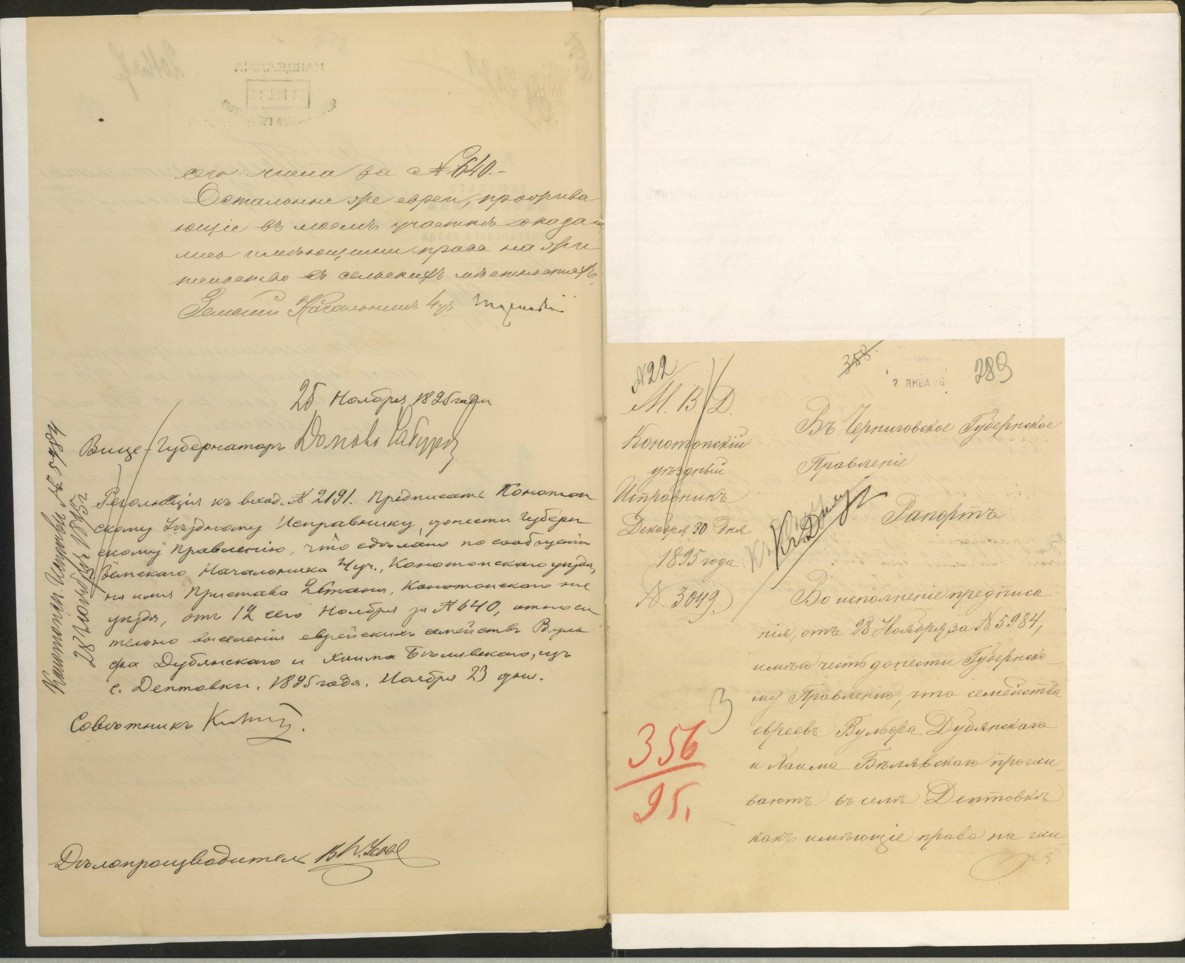 сего числа за № 640.-
Остальные же евреи, прожива
ющіе въ моемъ участкѣ оказа-
лись имѣющими права на жи
тельство въ сельскихъ мѣстностяхъ.
Земскій Начальникъ 4 уч.
25 Ноября 1895 года
Вице-Губернаторъ
Резолюція къ вход. № 2191. Предписать Конотоп
скому Уѣздному Исправнику донести Губерн
скому Правленію, что сдѣлано по сообщенію
Земскаго Начальника 4 уч., Конотопскаго уѣзда,
на имя Пристава 2 стана, Конотопскаго же
уѣзда, отъ 12 сего Ноября за № 640, относи
тельно выселенія еврейскихъ семействъ Вуль
фа Дубянскаго и Хаима Бѣлявскаго, изъ
с. Дептовки. 1895 года. Ноября 23 дня.
Совѣтникъ
Дѣлопроизводитель
Конотоп. Исправн. № 5984
28 ноября 1895 г
№ 22
358.
7 ЯНВА
289
М. В. Д.
Конотопскій
уѣздный
Исправникъ
Декабря 30 дня
1895 года
№ 3049
Въ Черниговское Губернское
Правленіе
Рапортъ
Во исполненіе предписа
нія, отъ 28 Ноября, за № 5984,
имѣю честь донести Губернско-
му Правленію, что семейства
евреевъ Вульфа Дубянскаго
и Хаима Бѣлявскаго прожи-
ваютъ въ селѣ Дептовкѣ
какъ имѣющіе право на жи
356
95.